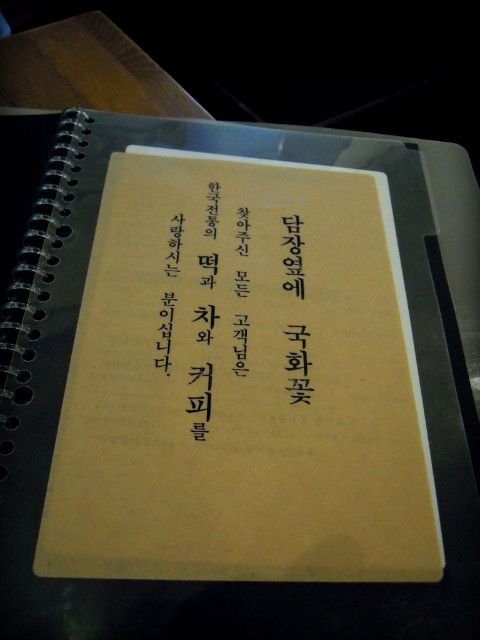 담장옆에 국화꽃
찾아주신 모든 고객님은
한국전통의 떡과 차와 커피를
사랑하시는 분이십니다.